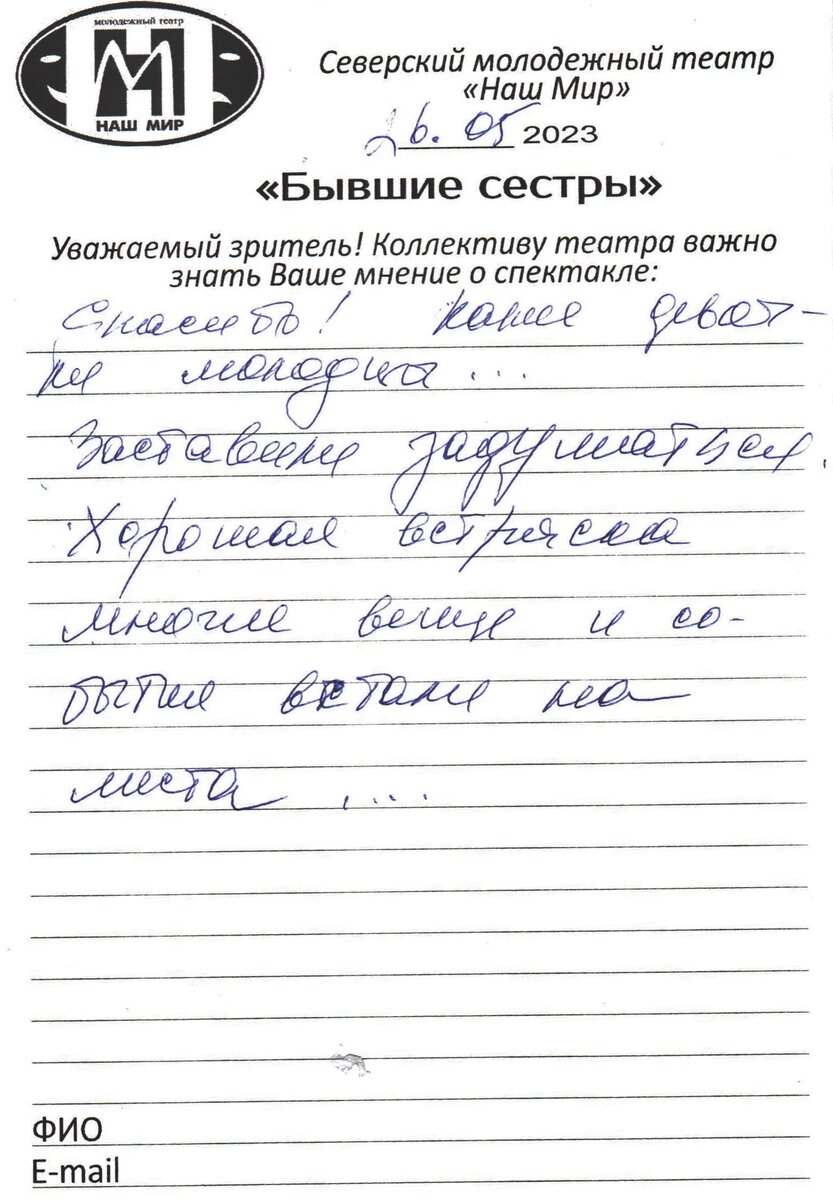 МОЛОДЕЖНЫЙ ТЕАТР
НАШ МИР
Северский молодежный театр
«Наш Мир»
26. 05 2023
«Бывшие сестры»
Уважаемый зритель! Коллективу театра важно
знать Ваше мнение о спектакле:
Спасибо! Какие девот-
ки молодцы...
Заставили задуматься.
Хорошая встряска
многие вещи и со-
бытия встали на
места ....
ФИО
E-mail